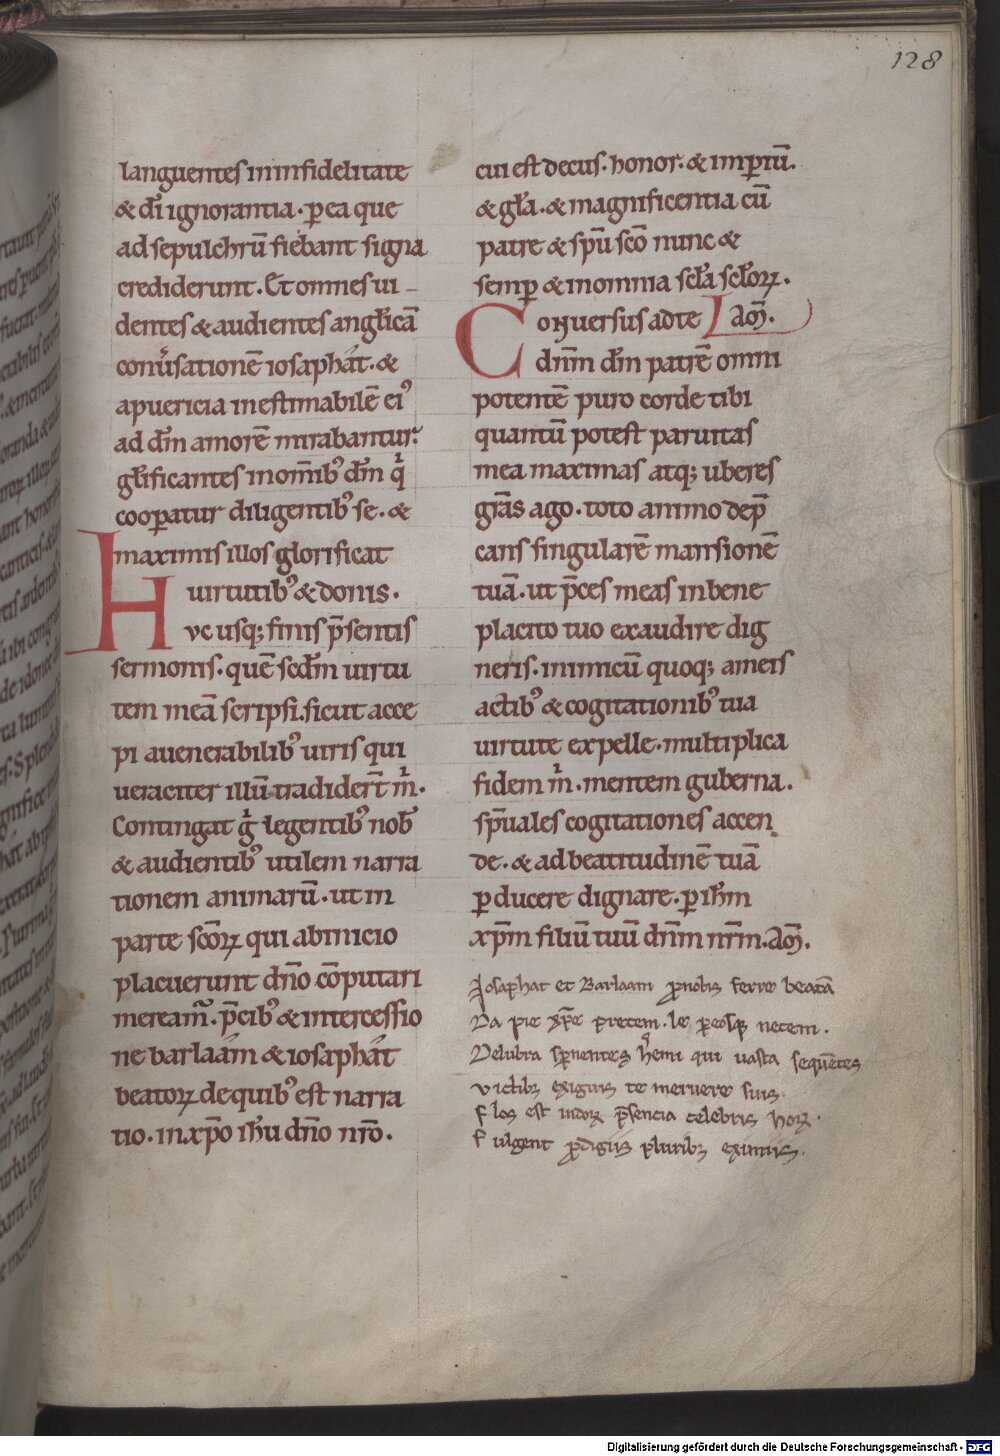 128
languentes in infidelitate
& dm̄ ignorantia · ꝑ ea que
ad sepulchrū fiebant signa
crediderunt . Et omnes ui
dentes & audientes anglicā
conuͥsationē iosaphát · &
a puericia inestimabilē eiꝰ
ad dm̄ amorē mirabantur .
gl̄ificantes in om̄ibꝰ dm̄ qͥ
cooꝑatur diligentibꝰ se · &
maximis illos glorificat
uirtutibꝰ & donis ·
Hvc usq; finis p̄sentis
sermonis . quē scdm̄ uirtu
tem meā scripsi . sicut acce
pi a uenerabilibꝰ uiris qui
ueraciter illū tradider̄t m̊ .
Contingat gͥ legentibꝰ nob̄
& audientibꝰ utilem narra
tionem animarū . ut in
parte sc̄oꝝ qui ab inicio
placuerunt dn̄o cōputari
mereamͣ . p̄cibꝰ & intercessio
ne barlaám & iosaphát
beatoꝝ de quibꝰ est narra
tio . in xp̄o ihu dn̄o nr̄o .
cui est decus · honor · & imꝑiū .
& gl̄a · & magnificentia cū
patre & sp̄u sc̄o nunc &
semꝑ & in omnia scl̄a scl̄oꝝ .
am̄ .
Conuersus ad te
dn̄m dm̄ patrē omni
potentē puro corde tibi
quantū potest paruitas
mea maximas atq; uberes
gr̄as ago . toto animo dep̄
cans singularē mansionē
tuā . ut p̄ces meas in bene
placito tuo exaudire dig
neris . inimicū quoq; a meis
actibꝰ & cogitationibꝰ tua
uirtute expelle . multiplica
fidem m̊ . mentem guberna .
sp̄uales cogitationes accen
de . & ad beatitudinē tuā
ꝑducere dignare . ꝑ ihm̄
xp̄m filiū tuū dn̄m nr̄m . am̄ .
Iosaphat et Barlaam ꝓ nobis ferre beatā
Da pie xp̄e precem . ne
Delubra sꝑnentes qui uasta sequētes
Victibꝫ exiguis te meruere suis .
Flos est p̄sencia celebris hoꝝ .
Fulgent ꝓdigiis pluribꝫ eximiis .
Digitalisierung gefördert durch die Deutsche Forschungsgemeinschaft - DFG